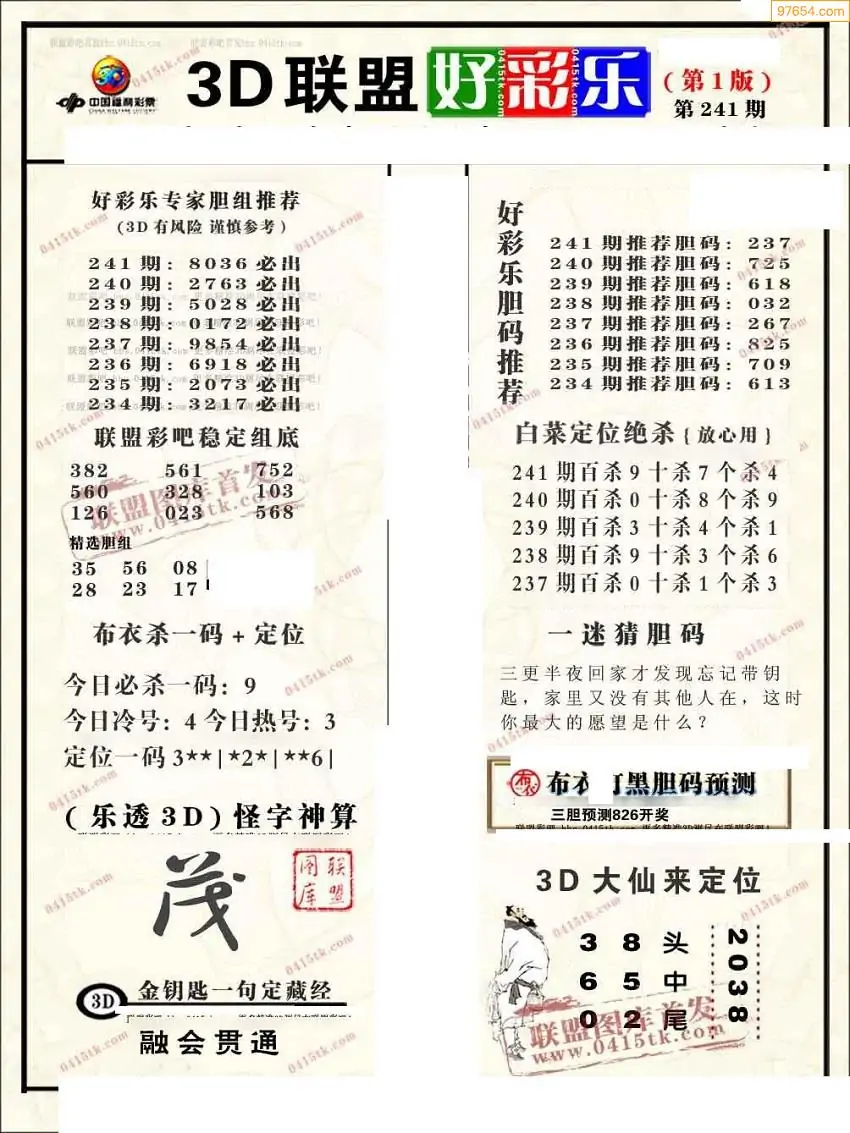 97654.com
中国福利彩票
CHINA WELFARE LOTTERY
3D联盟好彩乐
(第1版)
第241期
好彩乐专家胆组推荐
(3D有风险 谨慎参考)
241期：8036必出
240期：2763必出
239期：5028必出
238期：0172必出
237期：9854必出
236期：6918必出
235期：2073必出
234期：3217必出
联盟彩吧稳定组底
382 561 752
560 328 103
126 023 568
精选胆组
35 56 08
28 23 17
布衣杀一码+定位
今日必杀一码：9
今日冷号：4 今日热号：3
定位一码 3**|*2*|**6|
(乐透3D)怪字神算
茂
联盟图库
3D 金钥匙一句定藏经
融会贯通
好彩乐胆码推荐
241期推荐胆码：237
240期推荐胆码：725
239期推荐胆码：618
238期推荐胆码：032
237期推荐胆码：267
236期推荐胆码：825
235期推荐胆码：709
234期推荐胆码：613
白菜定位绝杀{放心用}
241期百杀9十杀7个杀4
240期百杀0十杀8个杀9
239期百杀3十杀4个杀1
238期百杀9十杀3个杀6
237期百杀0十杀1个杀3
一迷猜胆码
三更半夜回家才发现忘记带钥
匙，家里又没有其他人在，这时
你最大的愿望是什么？
布衣 黑胆码预测
三胆预测826开奖
3D大仙来定位
3 8 头
6 5 中
0 2 尾
2038
联盟图库首发
www.0415tk.com
0415tk.com